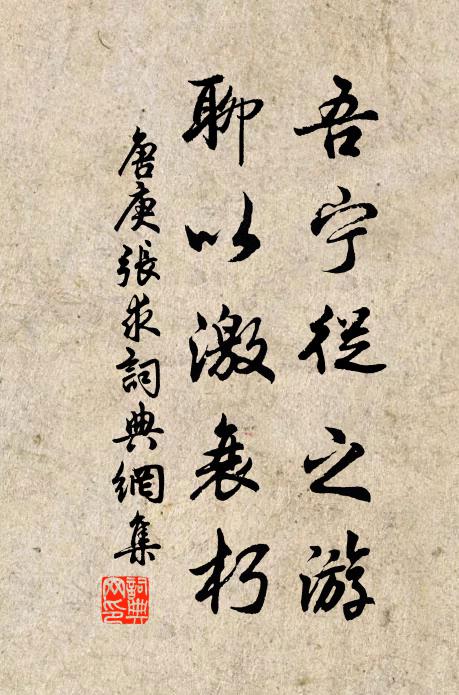 吾宁從之游
聊以激衰朽
唐庚張求詞典網集
詞典網印